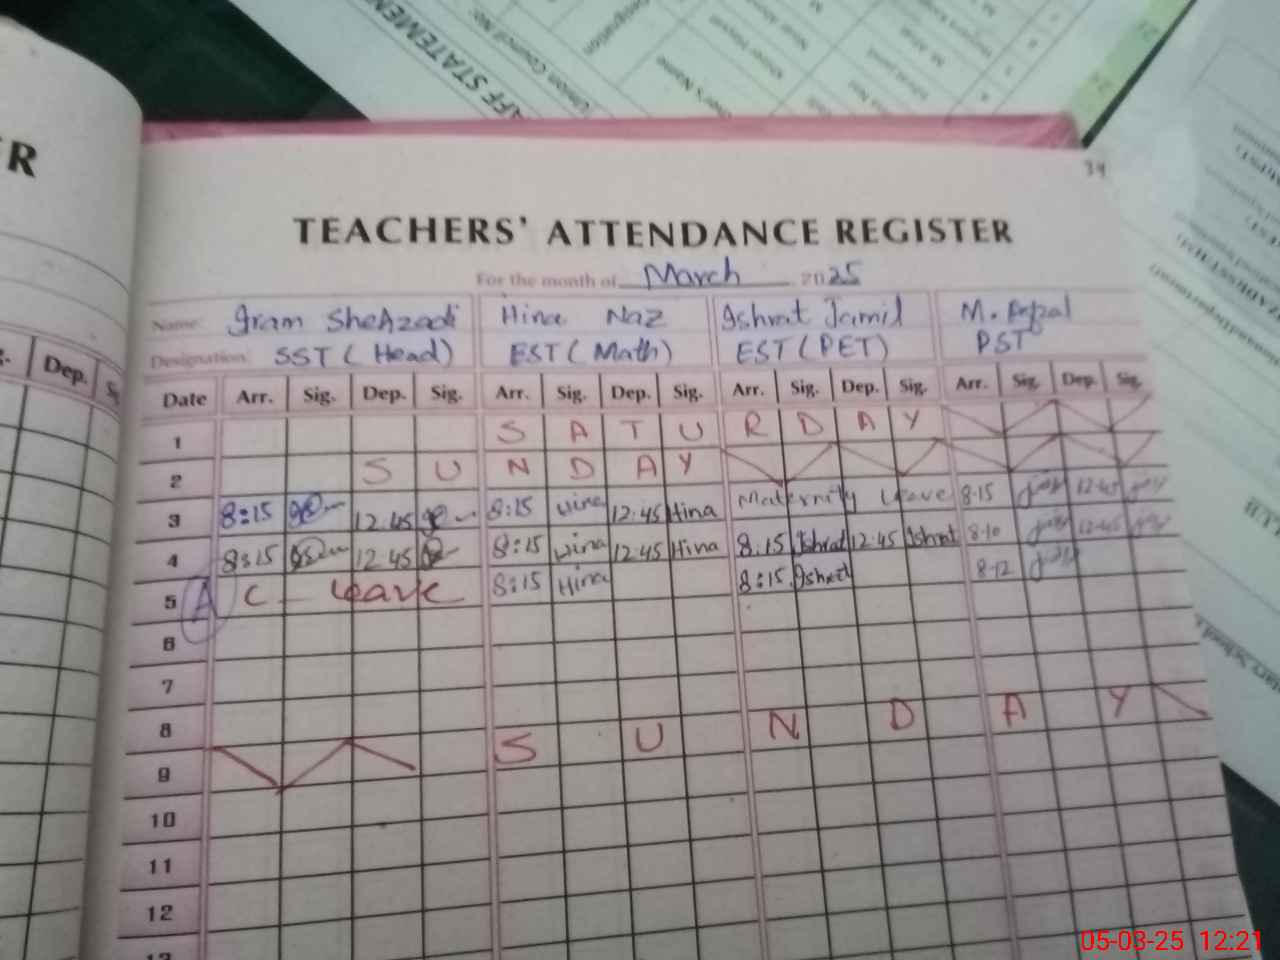 AFF STATEMEN
Union Council No:
Designation
er's Name
R
34
TEACHERS' ATTENDANCE REGISTER
For the month of March 2025
Name: Iram Shehzadi Hina Naz Ishrat Jamil M. Afzal
Designation: SST (Head) EST (Math) EST (PET) PST
Dep.
Date Arr. Sig. Dep. Sig. Arr. Sig. Dep. Sig. Arr. Sig. Dep. Sig. Arr. Sig. Dep. Sig.
1 S A T U R D A Y
2 S U N D A Y
3 8:15 12:45 8:15 Hina 12:45 Hina Maternity Leave 8-15 12-45
4 8:15 12:45 8:15 Hina 12:45 Hina 8:15 Ishrat 12:45 Ishrat 8-10 12-45
5 A C Leave 8:15 Hina 8:15 Ishrat 8-12
6
7
8
9 S U N D A Y
10
11
12
13
05-03-25 12:21